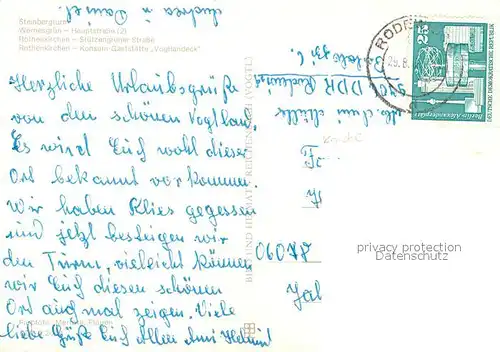 Steinbergturm
Wernesgrün – Hauptstraße (2)
Rothenkirchen – Stützengrüner Straße
Rothenkirchen – Konsum-Gaststätte „Vogtlandeck"
Herzliche Urlaubsgrüße
von dem schönen Vogtland.
Es wird Euch wohl dieser
Ort bekannt vorkommen.
Wir haben Klies gegessen
und jetzt besteigen wir
den Turm, vieleicht können
wir Euch diesen schönen
Ort auch mal zeigen. Viele
liebe Grüße Euch Allen
BILD UND HEIMAT REICHENBACH (VOGTL)
DDR
Fa
Jal
RODE
25.8.
25
Berlin-Alexanderplatz
DEUTSCHE DEMOKRATISCHE REPUBLIK
privacy protection
Datenschutz